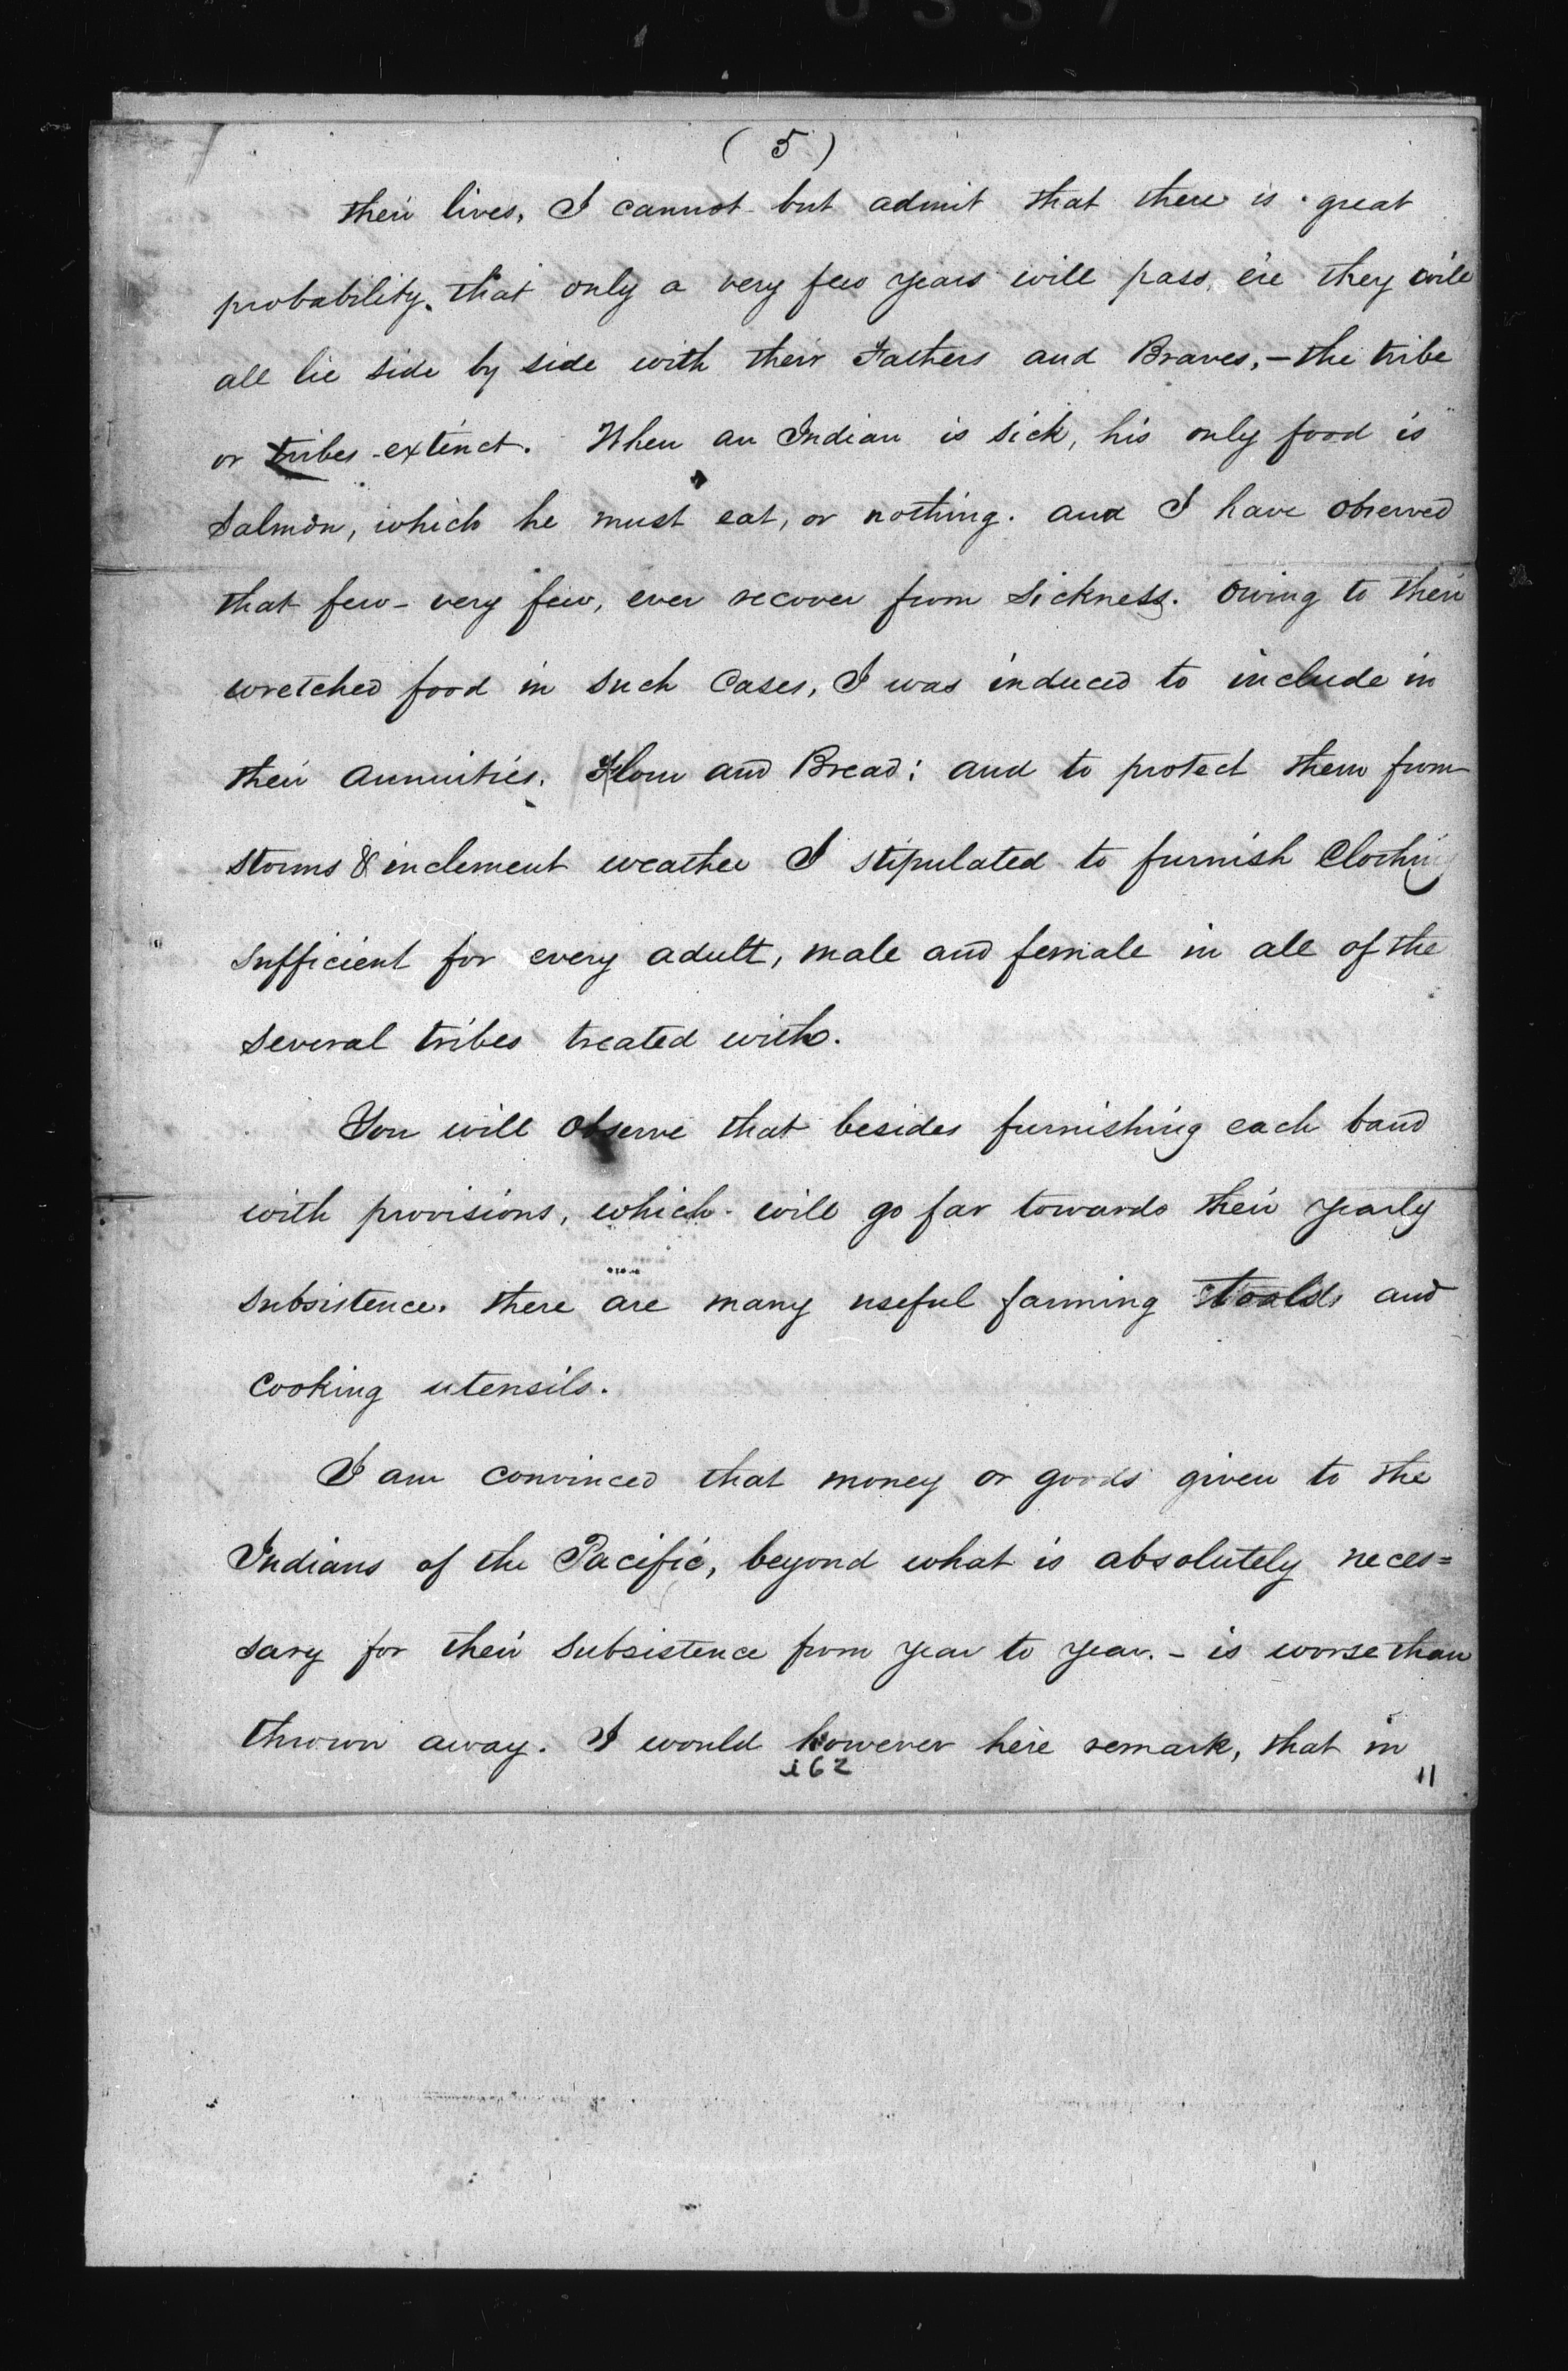 (5)
their lives, I cannot but admit that there is great
probability, that only a very few years will pass, e're they will
all lie side by side with their Fathers and Braves,- the tribe
or tribes extinct. When an Indian is sick, his only food is
Salmon, which he must eat, or nothing. and I have observed
that few- very few, ever recover from sickness. Owing to their
wretched food in such Cases, I was induced to include in
their Annuities, Flour and Bread; and to protect them from
storms & inclement weather I stipulated to furnish Clothing
sufficient for every adult, male and female in all of the
several tribes treated with.
You will observe that besides furnishing each band
with provisions, which will go far towards their yearly
subsistence. there are many useful farming tools and
cooking utensils.
I am convinced that money or goods given to the
Indians of the Pacific, beyond what is absolutely neces=
sary for their subsistence from year to year. - is worse than
thrown away. I would however here remark, that in
162
11